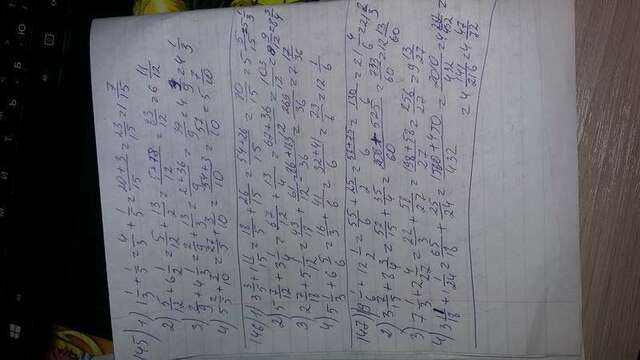 М И Т Ь Б Ю
145) 1) 1 1/3 + 1/5 = 4/3 + 1/5 = 20+3/15 = 23/15 = 1 7/15
2) 5/12 + 6 1/2 = 5/12 + 13/2 = 5+78/12 = 83/12 = 6 11/12
3) 2/9 + 4 1/3 = 2/9 + 13/3 = 2+36/9 = 39/9 = 4 1/3
4) 5 2/5 + 3/10 = 27/5 + 3/10 = 54+3/10 = 57/10 = 5 7/10
146) 1) 3 3/5 + 1 11/15 = 18/5 + 26/15 = 54+26/15 = 80/15 = 5 5/15 = 5 1/3
2) 5 7/12 + 3 1/4 = 67/12 + 13/4 = 67+36/12 = 103/12 = 8
3) 2 7/18 + 5 1/12 = 43/18 + 61/12 = 86+183/36 = 269/36 = 7 17/36
4) 5 1/3 + 6 5/6 = 16/3 + 41/6 = 32+41/6 = 73/6 = 12 1/6
147) 1) 9 1/6 + 12 1/2 = 55/6 + 25/2 = 55+75/6 = 130/6 = 21 4/6 = 21 2/3
2) 3 7/15 + 8 3/4 = 52/15 + 35/4 = + 525/60 = 733/60 = 12 13/60
3) 7 1/3 + 2 4/27 = 22/3 + 58/27 = 198+58/27 = 256/27 = 9 13/27
4) 3 11/18 + 1 1/24 = 65/18 + 25/24 = 1560+450/432 = 2010/432 = 4 /432 =
= 4 141/216 = 4 47/72